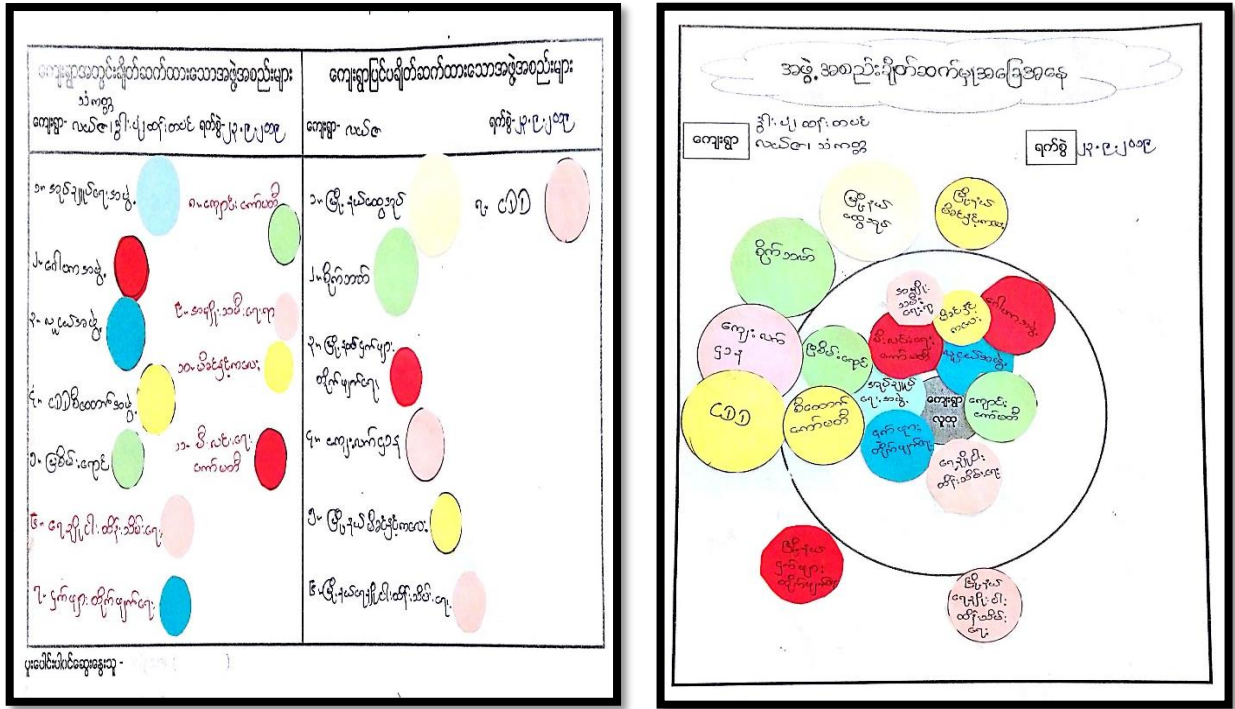 ကျေးရွာအတွင်းချိတ်ဆက်ထားသောအဖွဲ့အစည်းများ
သံကတ္တ
ကျေးရွာ- လယ်ဇ၊ ဒွါးပျံ့ထန်းတပင် ရက်စွဲ-၂၃.၉.၂၀၁၉
၁။ အုပ်ချုပ်ရေးအဖွဲ့
၂။ ဂေါပကအဖွဲ့
၃။ လူငယ်အဖွဲ့
၄။ CDD စီထောက်အဖွဲ့
၅။ မြစိမ်းရောင်
၆။ ရေချိုငါးထိန်းသိမ်းရေး
၇။ ငှက်ဖျားတိုက်ဖျက်ရေး
၈။ ကျောင်းကော်မတီ
၉။ အမျိုးသမီးရေးရာ
၁၀။ မိခင်နှင့်ကလေး
၁၁။ မီးလင်းရေး
ကော်မတီ
ပူးပေါင်းပါဝင်ဆွေးနွေးသူ -
ကျေးရွာပြင်ပချိတ်ဆက်ထားသောအဖွဲ့အစည်းများ
ကျေးရွာ- လယ်ဇ ရက်စွဲ-၂၃.၉.၂၀၁၉
၁။ မြို့နယ်ထွေအုပ်
၂။ စိုက်ဘဏ်
၃။ မြို့နယ်ငှက်ဖျား
တိုက်ဖျက်ရေး
၄။ ကျေးလက်ဌာန
၅။ မြို့နယ်မိခင်နှင့်ကလေး
၆။ မြို့နယ်ရေချိုငါးထိန်းသိမ်းရေး
၇။ CDD
အဖွဲ့အစည်းချိတ်ဆက်မှုအခြေအနေ
ကျေးရွာ
ဒွါးပျံ့ထန်းတပင်
လယ်ဇ၊ သံကတ္တ
ရက်စွဲ ၂၃.၉.၂၀၁၉
မြို့နယ်
ထွေအုပ်
မြို့နယ်
မိခင်နှင့်ကလေး
စိုက်ဘဏ်
အမျိုး
သမီး
ရေးရာ
မိခင်နှင့်
ကလေး
ဂေါပကအဖွဲ့
ကျေးလက်
ဌာန
မြစိမ်းရောင်
မီးလင်းရေး
ကော်မတီ
လူငယ်အဖွဲ့
CDD
စီထောက်
ကော်မတီ
အုပ်ချုပ်
ရေးအဖွဲ့
ကျေးရွာ
လူထု
ကျောင်း
ကော်မတီ
ငှက်ဖျား
တိုက်ဖျက်ရေး
ရေချိုငါး
ထိန်းသိမ်းရေး
မြို့နယ်
ငှက်ဖျား
တိုက်ဖျက်ရေး
မြို့နယ်
ရေချိုငါး
ထိန်းသိမ်း
ရေး